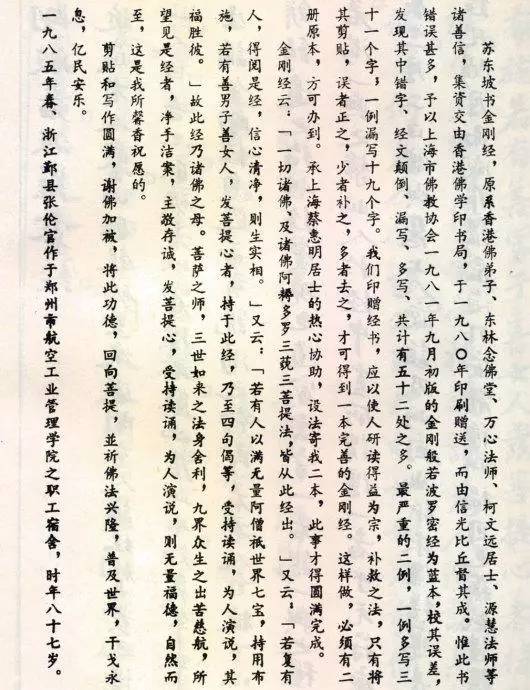 苏东坡书金刚经，原系香港佛弟子、东林念佛堂、万心法师、柯文远居士、源慧法师等
诸善信，集资交由香港佛学印书局，于一九八〇年印刷赠送，而由信光比丘督其成。惟此书
错误甚多，予以上海市佛教协会一九八一年九月初版的金刚般若波罗密经为蓝本，校其误差，
发现其中错字、经文颠倒、漏写、多写、共计有五十二处之多。最严重的二例，一例多写三
十一个字；一例漏写十九个字。我们印赠经书，应以使人研读得益为宗，补救之法，只有将
其剪贴，误者正之，少者补之，多者去之，才可得到一本完善的金刚经。这样做，必须有二
册原本，方可办到。承上海蔡惠明居士的热心协助，设法寄我二本，此事才得圆满完成。
金刚经云：「一切诸佛、及诸佛阿耨多罗三藐三菩提法，皆从此经出。」又云：「若复有
人，得闻是经，信心清净，则生实相。」又云：「若有人以满无量阿僧祇世界七宝，持用布
施，若有善男子善女人，发菩提心者，持于此经，乃至四句偈等，受持读诵，为人演说，其
福胜彼。」故此经乃诸佛之母。菩萨之师，三世如来之法身舍利，九界众生之出苦慈航，所
望见是经者，净手洁案，主敬存诚，发菩提心，受持读诵，为人演说，则无量福德，自然而
至，这是我所馨香祝愿的。
剪贴和写作圆满，谢佛加被，将此功德，回向菩提，並祈佛法兴隆，普及世界，干戈永
息，亿民安乐。
一九八五年春、浙江鄞县张伦官作于郑州市航空工业管理学院之职工宿舍，时年八十七岁。